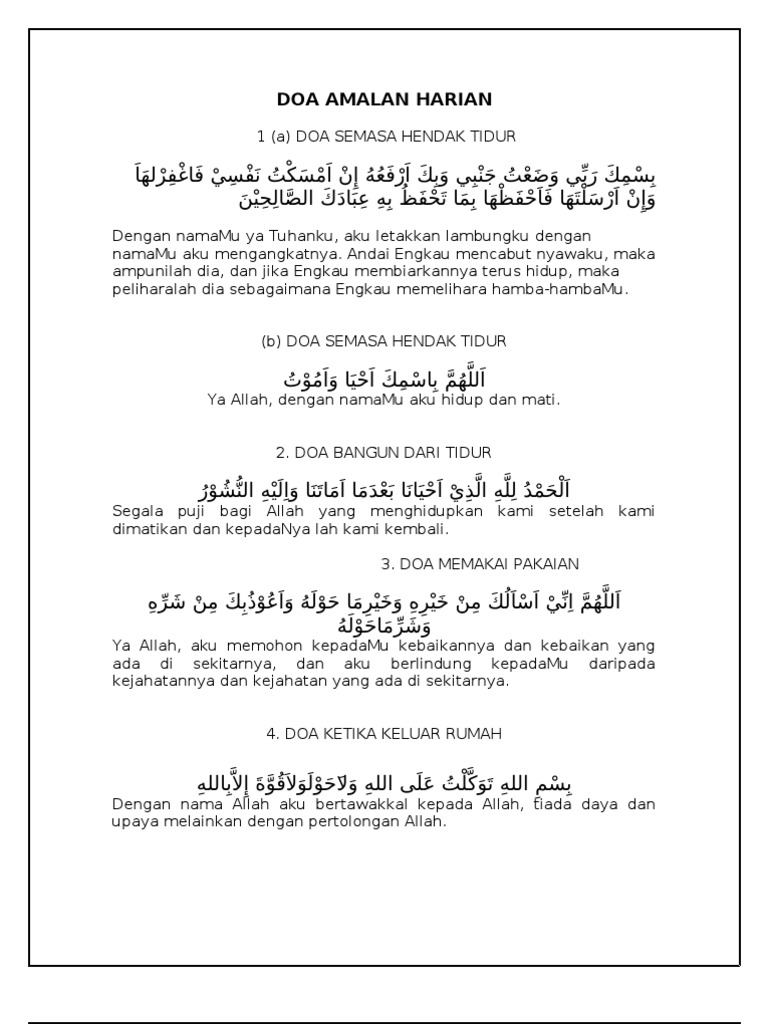 DOA AMALAN HARIAN
1 (a) DOA SEMASA HENDAK TIDUR
بِسْمِكَ رَبِّي وَضَعْتُ جَنْبِي وَبِكَ اَرْفَعُهُ إِنْ اَمْسَكْتُ نَفْسِيْ فَاغْفِرْلهَاَ
وَإِنْ اَرْسَلْتَهَا فَاَحْفَظْهَا بِمَا تَحْفَظُ بِهِ عِبَادَكَ الصَّالِحِيْنَ
Dengan namaMu ya Tuhanku, aku letakkan lambungku dengan
namaMu aku mengangkatnya. Andai Engkau mencabut nyawaku, maka
ampunilah dia, dan jika Engkau membiarkannya terus hidup, maka
peliharalah dia sebagaimana Engkau memelihara hamba-hambaMu.
(b) DOA SEMASA HENDAK TIDUR
اَللَّهُمَّ بِاسْمِكَ اَحْيَا وَاَمُوْتُ
Ya Allah, dengan namaMu aku hidup dan mati.
2. DOA BANGUN DARI TIDUR
اَلْحَمْدُ لِلَّهِ الَّذِيْ اَحْيَانَا بَعْدَمَا اَمَاتَنَا وَاِلَيْهِ النُّشُوْرُ
Segala puji bagi Allah yang menghidupkan kami setelah kami
dimatikan dan kepadaNya lah kami kembali.
3. DOA MEMAKAI PAKAIAN
اَللَّهُمَّ اِنِّيْ اَسْاَلُكَ مِنْ خَيْرِهِ وَخَيْرِمَا حَوْلَهُ وَاَعُوْذُبِكَ مِنْ شَرِّهِ
وَشَرِّمَاحَوْلَهُ
Ya Allah, aku memohon kepadaMu kebaikannya dan kebaikan yang
ada di sekitarnya, dan aku berlindung kepadaMu daripada
kejahatannya dan kejahatan yang ada di sekitarnya.
4. DOA KETIKA KELUAR RUMAH
بِسْمِ اللهِ تَوَكَّلْتُ عَلَى اللهِ وَلَاحَوْلَوَلاَقُوَّةَ إِلاَّبِاللهِ
Dengan nama Allah aku bertawakkal kepada Allah, tiada daya dan
upaya melainkan dengan pertolongan Allah.